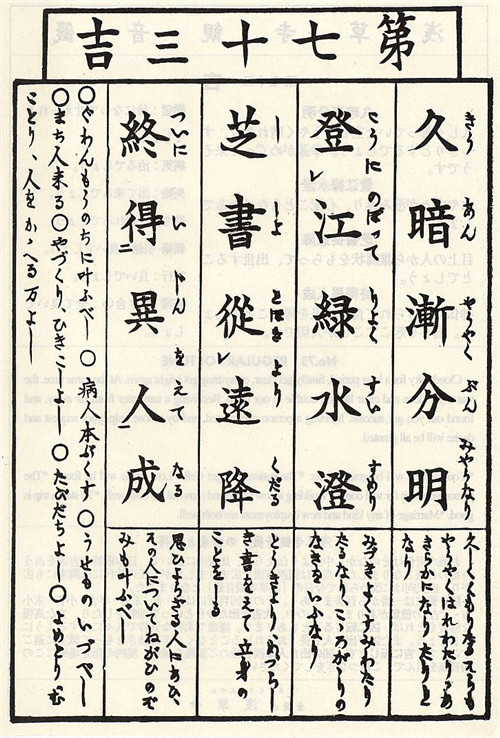 第七十三吉
久暗漸分明
きうあんやうやくぶんみやうなり
久しくくもりたるそらも
やう〱はれわたりてあ
きらかになりたりと
なり
登レ江緑水澄
こうにのぼつてりよくすいすめり
みづきよくすみわたり
たるなり、こゝろがゝりの
なきをいふなり
芝書從レ遠降
ししよとほきよりくだる
とほきより、めづらし
き書をえて立身の
ことをしる
終得異人成
ついにいじんをえてなる
思ひよらざる人にあひ、
その人についてねがひのぞ
みも叶ふべし
○ぐわんもうのちに叶ふべし○病人本ぷくす○うせものいづべし
○まち人来る○やづくり、ひきこしよし○たびだちよし○よめとりむ
ことり、人をかゝへる万よし